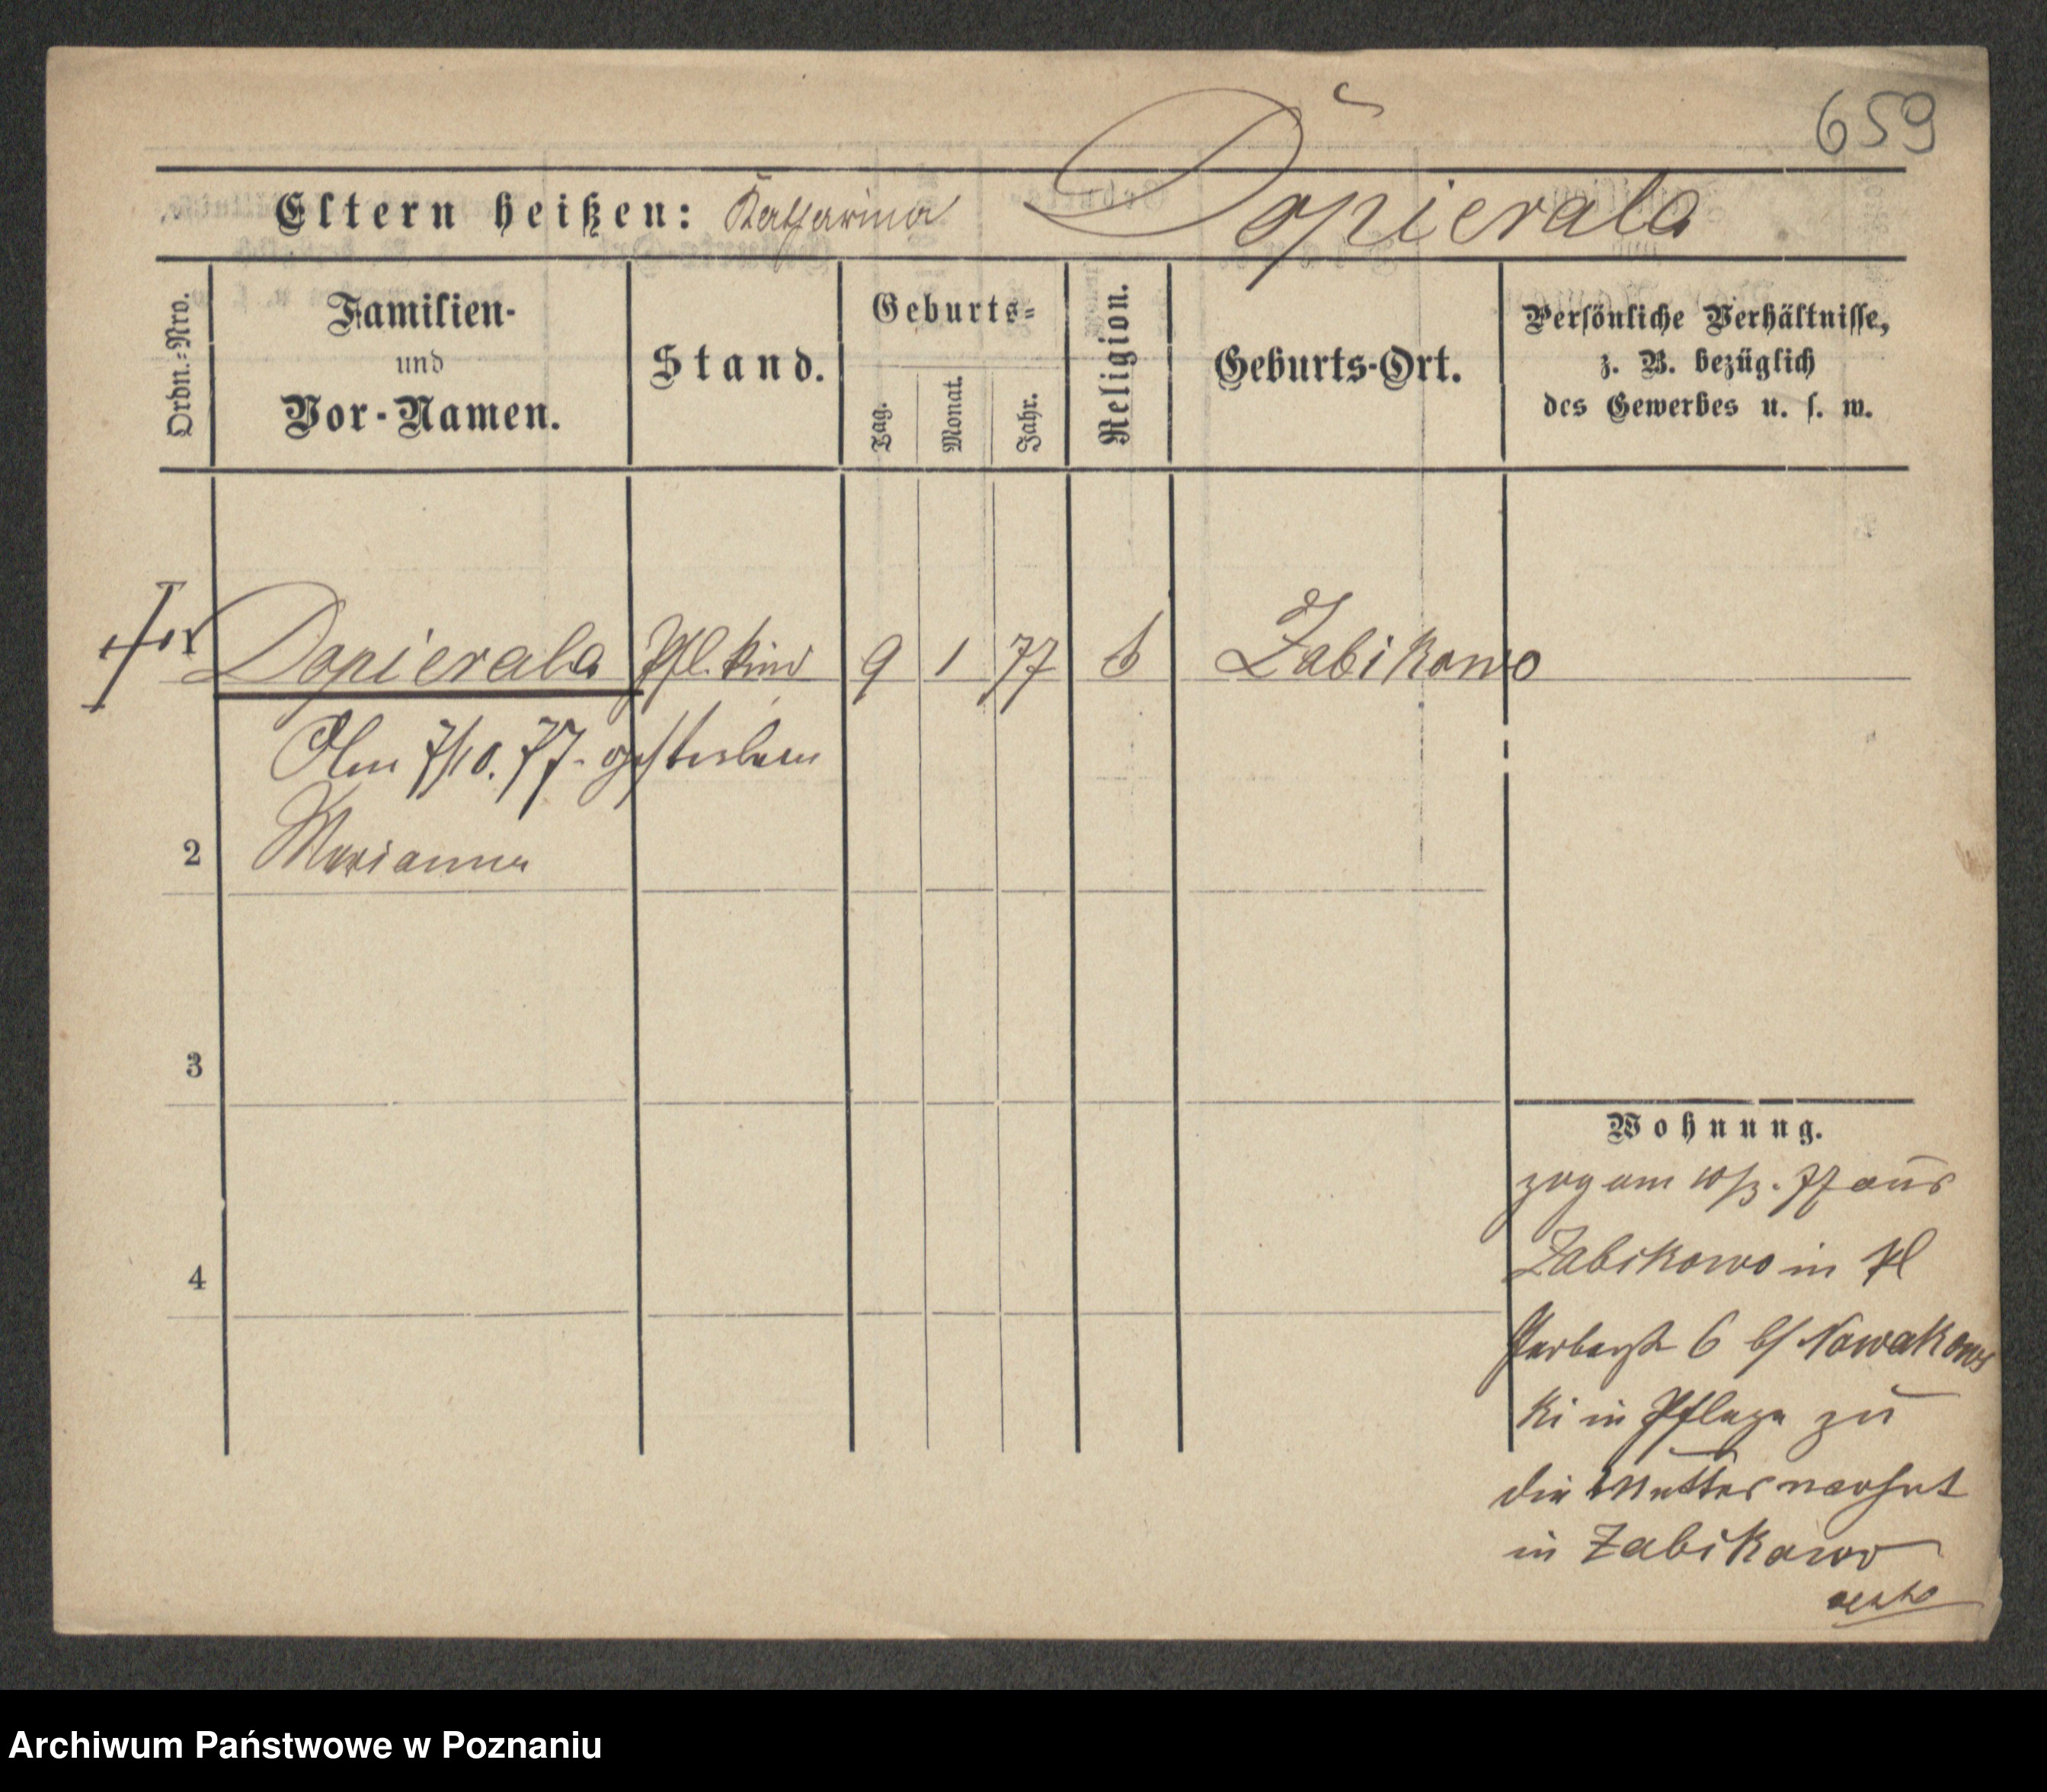 659
Eltern heißen: Katharina Dopierala
Ordn.-Nro.
Familien-
und
Vor-Namen.
Stand.
Geburts-
Tag.
Monat.
Jahr.
Religion.
Geburts-Ort.
Persönliche Verhältnisse,
z. B. bezüglich
des Gewerbes u. s. w.
Dopierala Pfl. Kind 9 1 77 Zabikowo
Am 7/10. 77. gestorben
2 Marianna
3
4
Wohnung.
zog am 10/3. 77 aus
Zabikowo in
6 b/ Nowakows
ki in Pflege zu
die Mutter wohnt
in Zabikowo
Archiwum Państwowe w Poznaniu